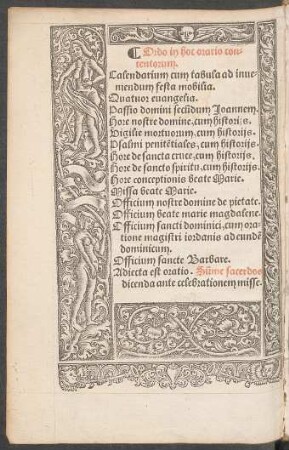 ¶ Ordo in hoc orario con-
tentorum.
Calendarium cum tabula ad inue-
niendum festa mobilia.
Quatuor euangelia.
Passio domini secūdum Joannem.
Hore nostre domine, cum historijs.
Vigilie mortuorum, cum historijs.
Psalmi penitētiales, cum historijs.
Hore de sancta cruce, cum historijs.
Hore de sancto spiritu, cum historijs.
Hore conceptionis beate Marie.
Missa beate Marie.
Officium nostre domine de pietate.
Officium beate marie magdalene.
Officium sancti dominici, cum ora-
tione magistri iordanis ad eundē
dominicum.
Officium sancte Barbare.
Adiecta est oratio. Sūme sacerdos
dicenda ante celebrationem misse.